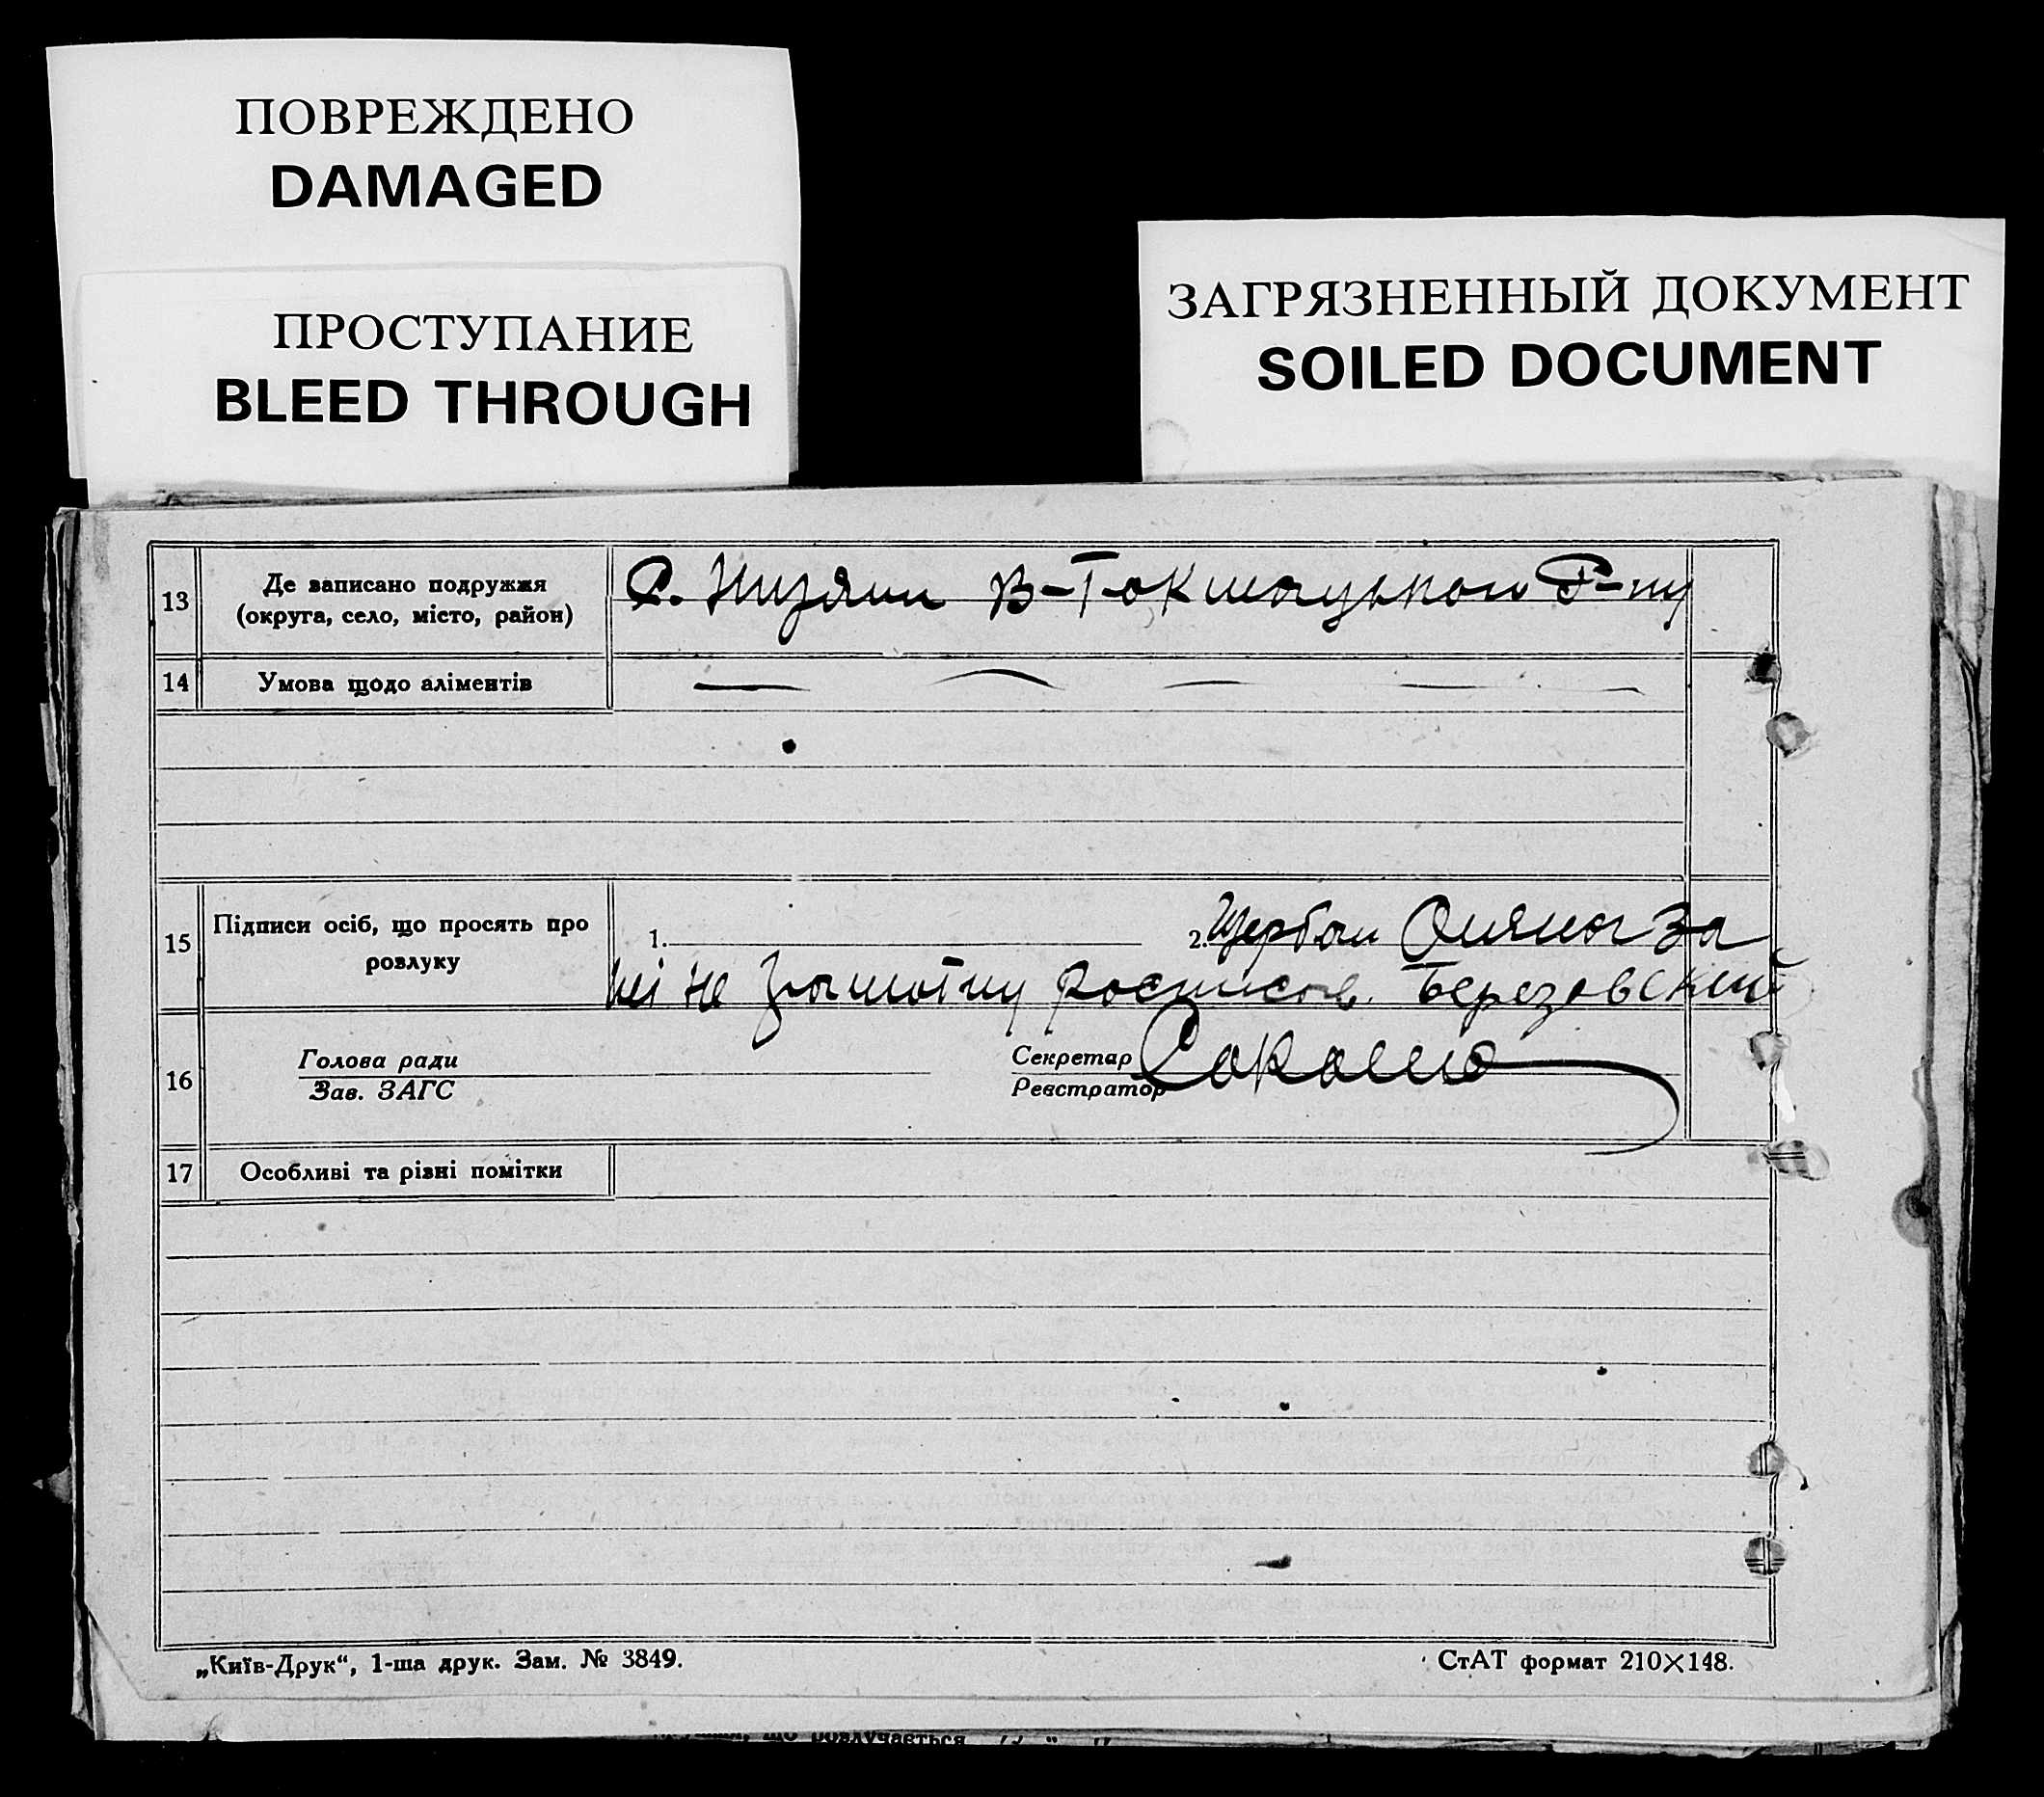 ПОВРЕЖДЕНО
DAMAGED
ПРОСТУПАНИЕ
BLEED THROUGH
ЗАГРЯЗНЕННЫЙ ДОКУМЕНТ
SOILED DOCUMENT
13 Де записано подружжя
(округа, село, місто, район)
С. Низяни В-Токмацького Р-ну
14 Умова щодо аліментів
15 Підписи осіб, що просять про
розлуку
1. 2. Щербан Оляна За
неї не грамотну росписов. Березовский
16 Голова ради
Зав. ЗАГС
Секретар
Реєстратор
17 Особливі та різні помітки
„Київ-Друк“, 1-ша друк. Зам. № 3849.
СтАТ формат 210×148.
що розлучається